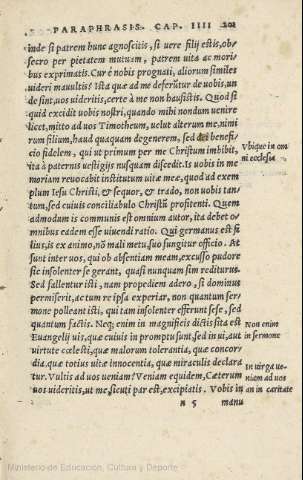 PARAPHRASIS CAP. IIII 202
inde si patrem hunc agnoscitis, si uere filij estis, ob-
secro per pietatem mutuam, patrem uita ac mori
bus exprimatis. Cur è nobis prognati, aliorum similes
uideri maultis? Ista quæ ad me deferũtur de uobis, un
de sint, uos uideritis, certe à me non hausistis. Quod si
quid excidit uobis nostri, quando mihi nondum uenire
licet, mitto ad uos Timotheum, uelut alterum me, mini
rum filium, haud quaquam degenerem, sed dei benefi
cio fidelem, qui ut primum per me Christum imbibit,
ita à paternis uestigijs nusquam discedit. Is uobis in me
moriam reuocabit institutum uitæ meæ, quod ad exem
plum Iesu Christi, & sequor, & trado, non uobis tan/
tum, sed cuiuis conciliabulo Christũ profitenti. Quem
admodum is communis est omnium autor, ita debet o/
mnibus eadem esse uiuendi ratio. Qui germanus est fi
lius, is ex animo, nõ mali metu, suo fungitur officio. At
sunt inter uos, qui ob absentiam meam, excusso pudore
sic insolenter se gerant, quasi nunquam sim rediturus.
Sed falluntur isti, nam propediem adero, si dominus
permiserit, ac tum re ipsa experiar, non quantum ser-
mone polleant isti, qui tam insolenter efferunt sese, sed
quantum factis. Neq; enim in magnificis dictis sita est
Euangelij uis, quæ cuiuis in promptu sunt, sed in ui, aut
uirtute cœlesti, quæ malorum tolerantia, quæ concor/
dia, quæ totius uitæ innocentia, quæ miraculis declara
tur. Vultis ad uos ueniam? Veniam equidem, Cæterum
uos uideritis, ut me, sicuti par est, excipiatis. Vobis in
n 5 manu
Vbique in om
ni ecclesia
Non enim
in sermone
In uirga ue-
niam ad uos
an in caritate
Ministerio de Educación, Cultura y Deporte